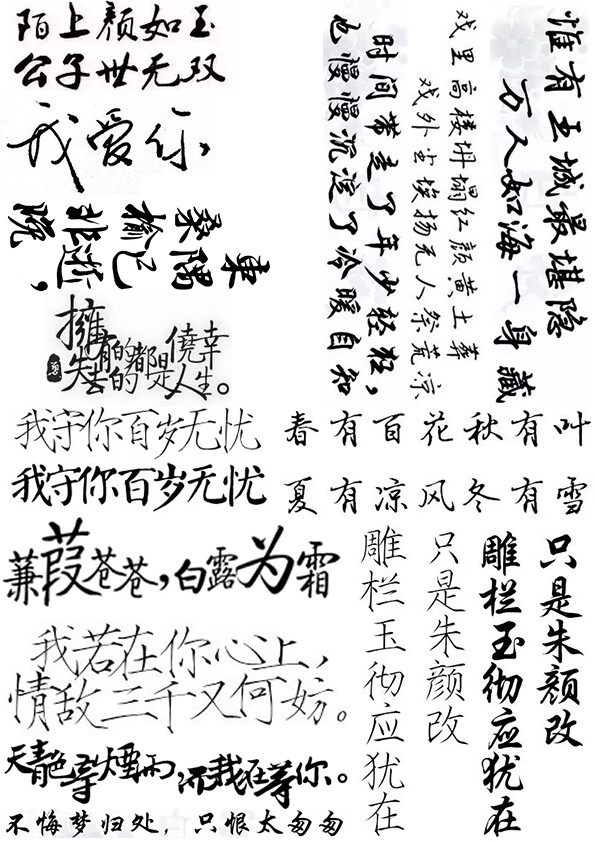 陌上颜如玉
公子世无双
我爱你
東隅已逝，
桑榆非晚
擁有的都是僥幸
失去的都是人生。
惟有王城最堪隐
万人如海一身藏
戏里高楼坍塌红颜黄土葬
戏外尘埃扬无人祭荒凉
时间带走了年少轻狂，
也慢慢沉淀了冷暖自知
我守你百岁无忧
我守你百岁无忧
春有百花秋有叶
夏有凉风冬有雪
蒹葭苍苍，白露为霜
我若在你心上，
情敌三千又何妨。
天青色等煙雨，而我在等你。
不悔梦归处，只恨太匆匆
雕栏玉彻应犹在
只是朱颜改
雕栏玉彻应犹在
只是朱颜改